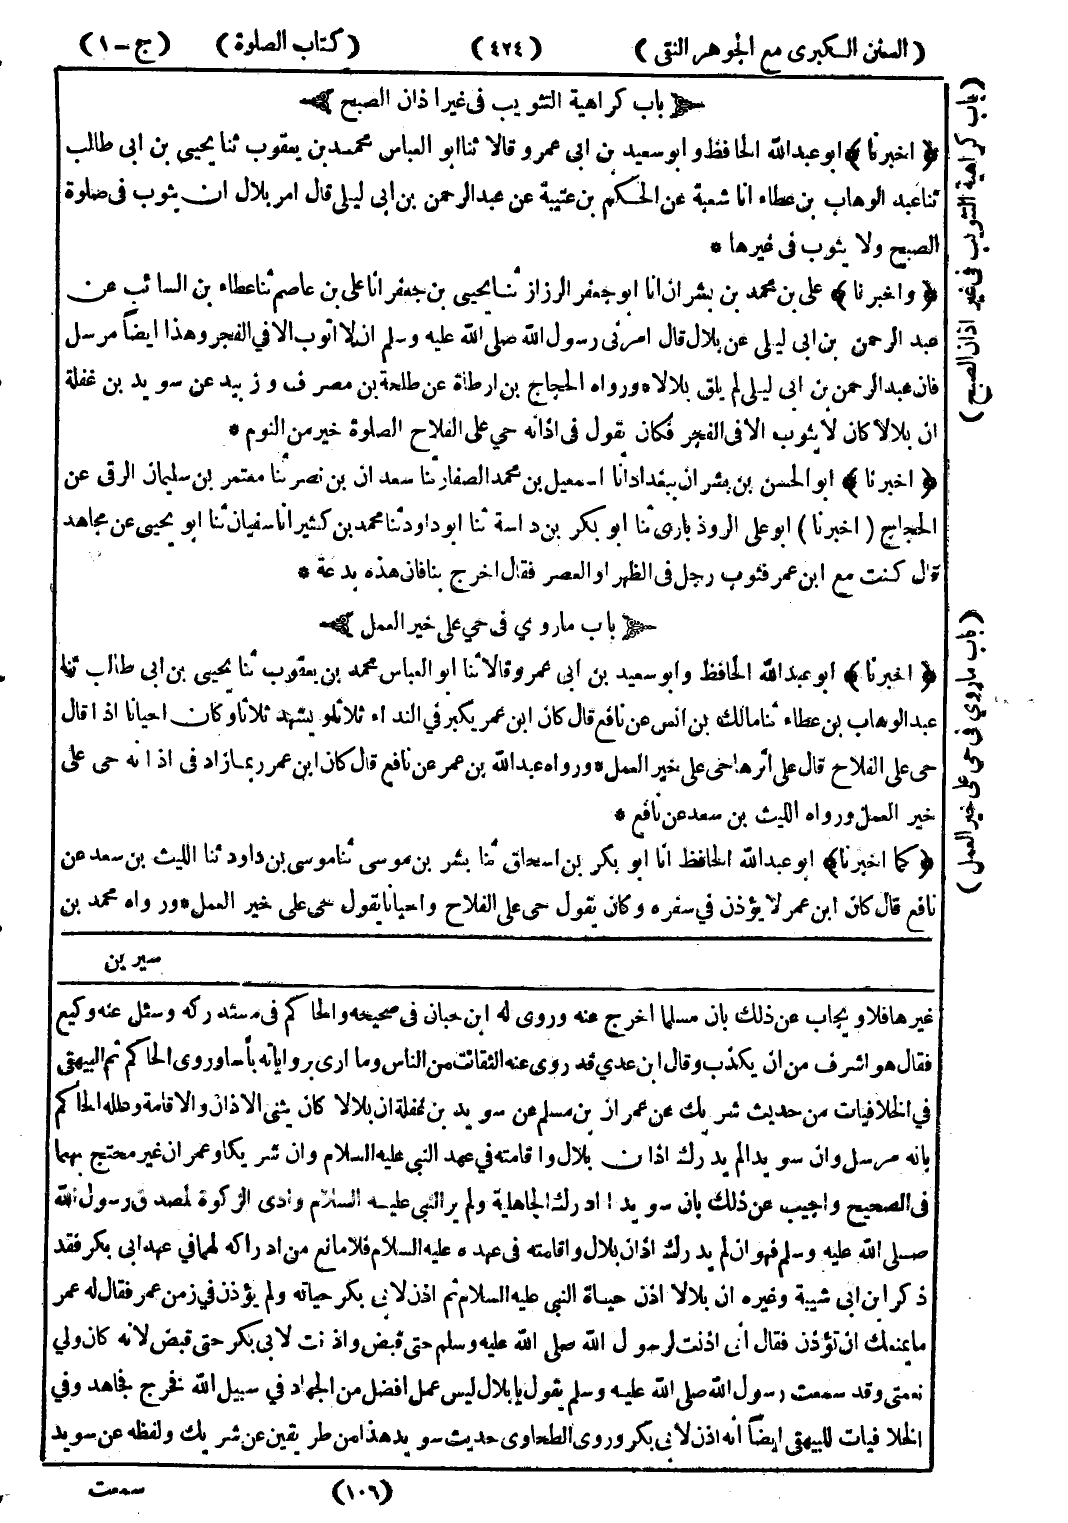 (السنن الكبرى مع الجوهر النقى) (٤٢٤) (كتاب الصلوة) (ج-١)
باب كراهية التثويب فى غير اذان الصبح
﴿ اخبرنا ﴾ ابو عبدالله الحافظ و ابو سعيد بن ابى عمرو قالا ثنا ابو العباس محمد بن يعقوب ثنا يحيى بن ابى طالب
ثنا عبد الوهاب بن عطاء انا شعبة عن الحكم بن عتيبة عن عبدالرحمن بن ابى ليلى قال امر بلال ان يثوب فى صلوة
الصبح ولا يثوب فى غيرها *
﴿ واخبرنا ﴾ على بن محمد بن بشران انا ابو جعفر الرزاز ثنا يحيى بن جعفر انا على بن عاصم ثنا عطاء بن السائب عن
عبد الرحمن بن ابى ليلى عن بلال قال امرنى رسول الله صلى الله عليه وسلم ان لا اثوب الا فى الفجر وهذا ايضاً مرسل
فان عبدالرحمن بن ابى ليلى لم يلق بلالا * ورواه الحجاج بن ارطاة عن طلحة بن مصرف وزبيد عن سويد بن غفلة
ان بلالا كان لا يثوب الا فى الفجر فكان يقول فى اذانه حي على الفلاح الصلوة خير من النوم *
﴿ اخبرنا ﴾ ابو الحسن بن بشران ببغداد انا اسمعيل بن محمد الصفار ثنا سعدان بن نصر ثنا معتمر بن سليمان الرقى عن
الحجاج (اخبرنا) ابو على الروذبارى ثنا ابو بكر بن داسة ثنا ابو داود ثنا محمد بن كثير انا سفيان ثنا ابو يحيى عن مجاهد
قال كنت مع ابن عمر فثوب رجل فى الظهر او العصر فقال اخرج بنا فان هذه بدعة *
باب ماروي فى حي على خير العمل
﴿ اخبرنا ﴾ ابو عبدالله الحافظ وابو سعيد بن ابى عمرو قالا ثنا ابو العباس محمد بن يعقوب ثنا يحيى بن ابى طالب ثنا
عبدالوهاب بن عطاء ثنا مالك بن انس عن نافع قال كان ابن عمر يكبر في النداء ثلاثا ويشهد ثلاثا وكان احيانا اذا قال
حى على الفلاح قال على اثرها حى على خير العمل * ورواه عبدالله بن عمر عن نافع قال كان ابن عمر ربما زاد فى اذانه حى على
خير العمل ورواه الليث بن سعد عن نافع *
﴿ كما اخبرنا ﴾ ابو عبدالله الحافظ انا ابو بكر بن اسحاق ثنا بشر بن موسى ثنا موسى بن داود ثنا الليث بن سعد عن
نافع قال كان ابن عمر لا يؤذن في سفره وكان يقول حى على الفلاح واحيانا يقول حى على خير العمل * ورواه محمد بن
سيرين
غيرها فلا ويجاب عن ذلك بان مسلما اخرج عنه وروى له ابن حبان فى صحيحه والحاكم فى مستدركه وسئل عنه وكيع
فقال هو اشرف من ان يكذب وقال ابن عدي قد روى عنه الثقات من الناس وما ارى برواياته بأسا وروى الحاكم ثم البيهقى
في الخلافيات من حديث شريك عن عمران بن مسلم عن سويد بن غفلة ان بلالا كان يثنى الاذان والاقامة وعلله الحاكم
بانه مرسل وان سويدا لم يدرك اذان بلال واقامته في عهد النبي عليه السلام وان شريكا وعمران غير محتج بهما
فى الصحيح واجيب عن ذلك بان سويدا ادرك الجاهلية ولم ير النبي عليه السلام وادى الزكوة لمصدق رسول الله
صلى الله عليه وسلم فهو ان لم يدرك اذان بلال واقامته فى عهده عليه السلام فلا مانع من ادراكه لهما في عهد ابى بكر فقد
ذكر ابن ابى شيبة وغيره ان بلالا اذن حياة النبي عليه السلام ثم اذن لابى بكر حياته ولم يؤذن في زمن عمر فقال له عمر
ما يمنعك ان تؤذن فقال أنى اذنت لرسول الله صلى الله عليه وسلم حتى قبض واذنت لابى بكر حتى قبض لانه كان ولي
نعمتى وقد سمعت رسول الله صلى الله عليه وسلم يقول يا بلال ليس عمل افضل من الجهاد في سبيل الله فخرج فجاهد وفي
الخلافيات للبيهقى ايضاً أنه اذن لابى بكر وروى الطحاوى حديث سويد هذا من طريقين عن شريك ولفظه عن سويد
(١٠٦) سمعت
(باب كراهية التثويب فى غير اذان الصبح)
(باب ماروي فى حي على خير العمل)